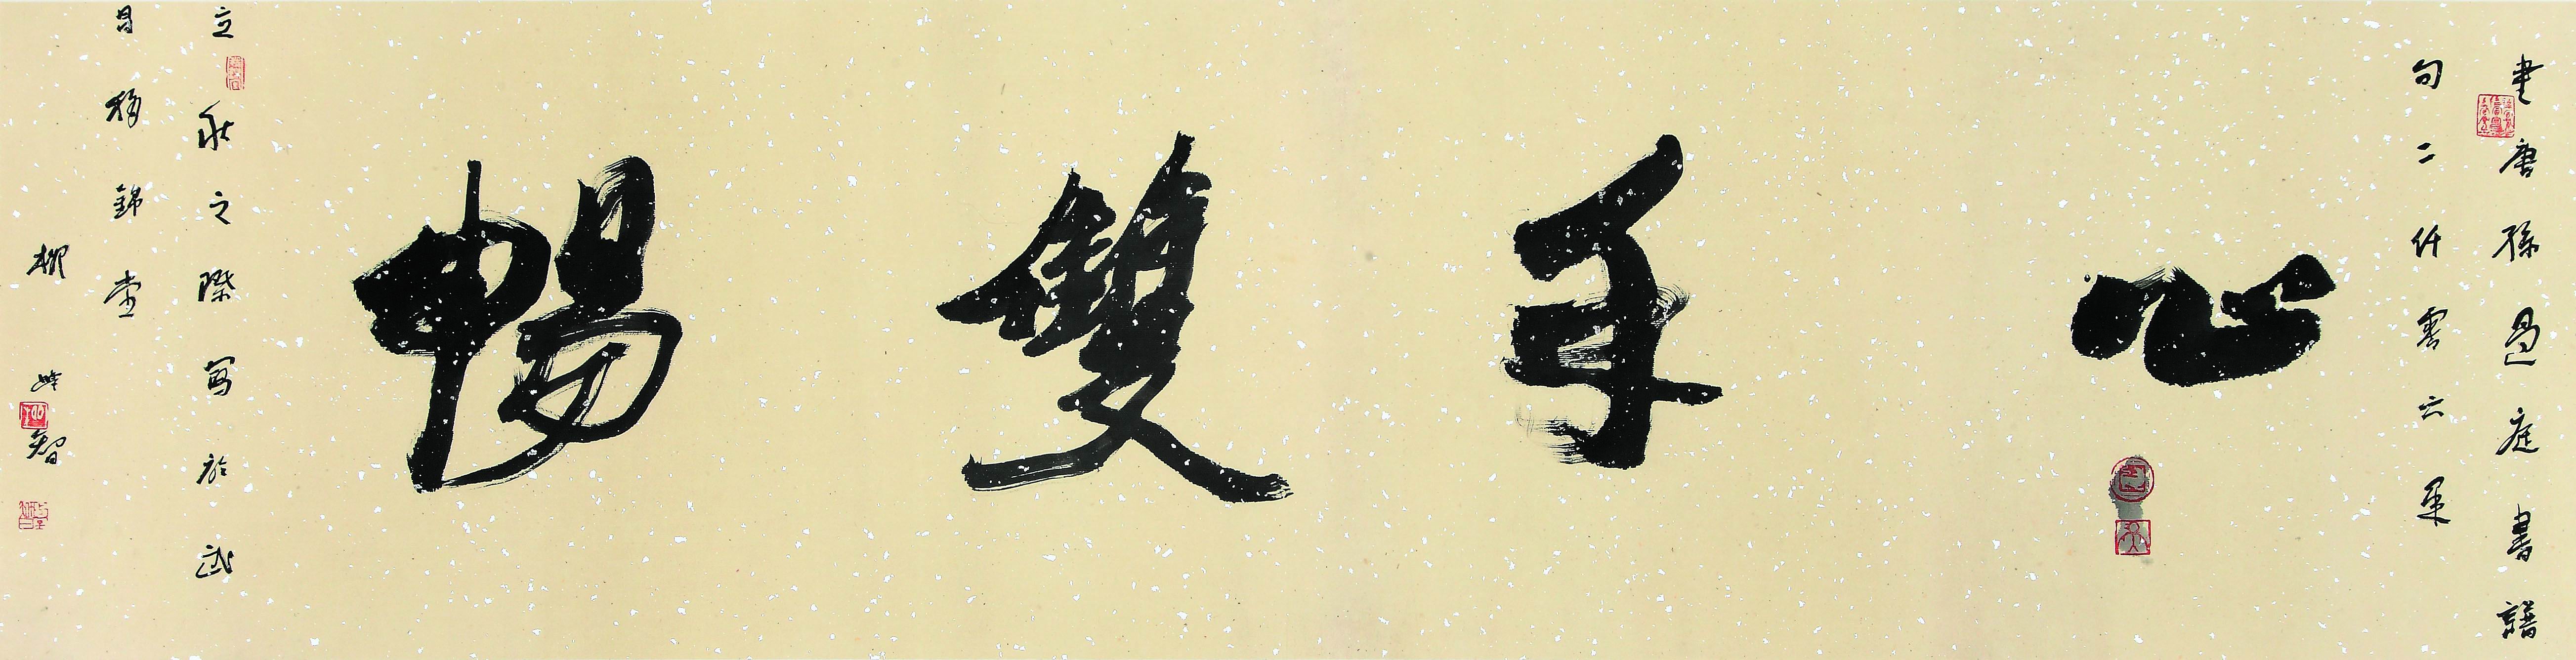 書唐孫過庭書譜
句二仟零六年
心手雙暢
立秋之際寫於武
昌楊錦堂
柳
智